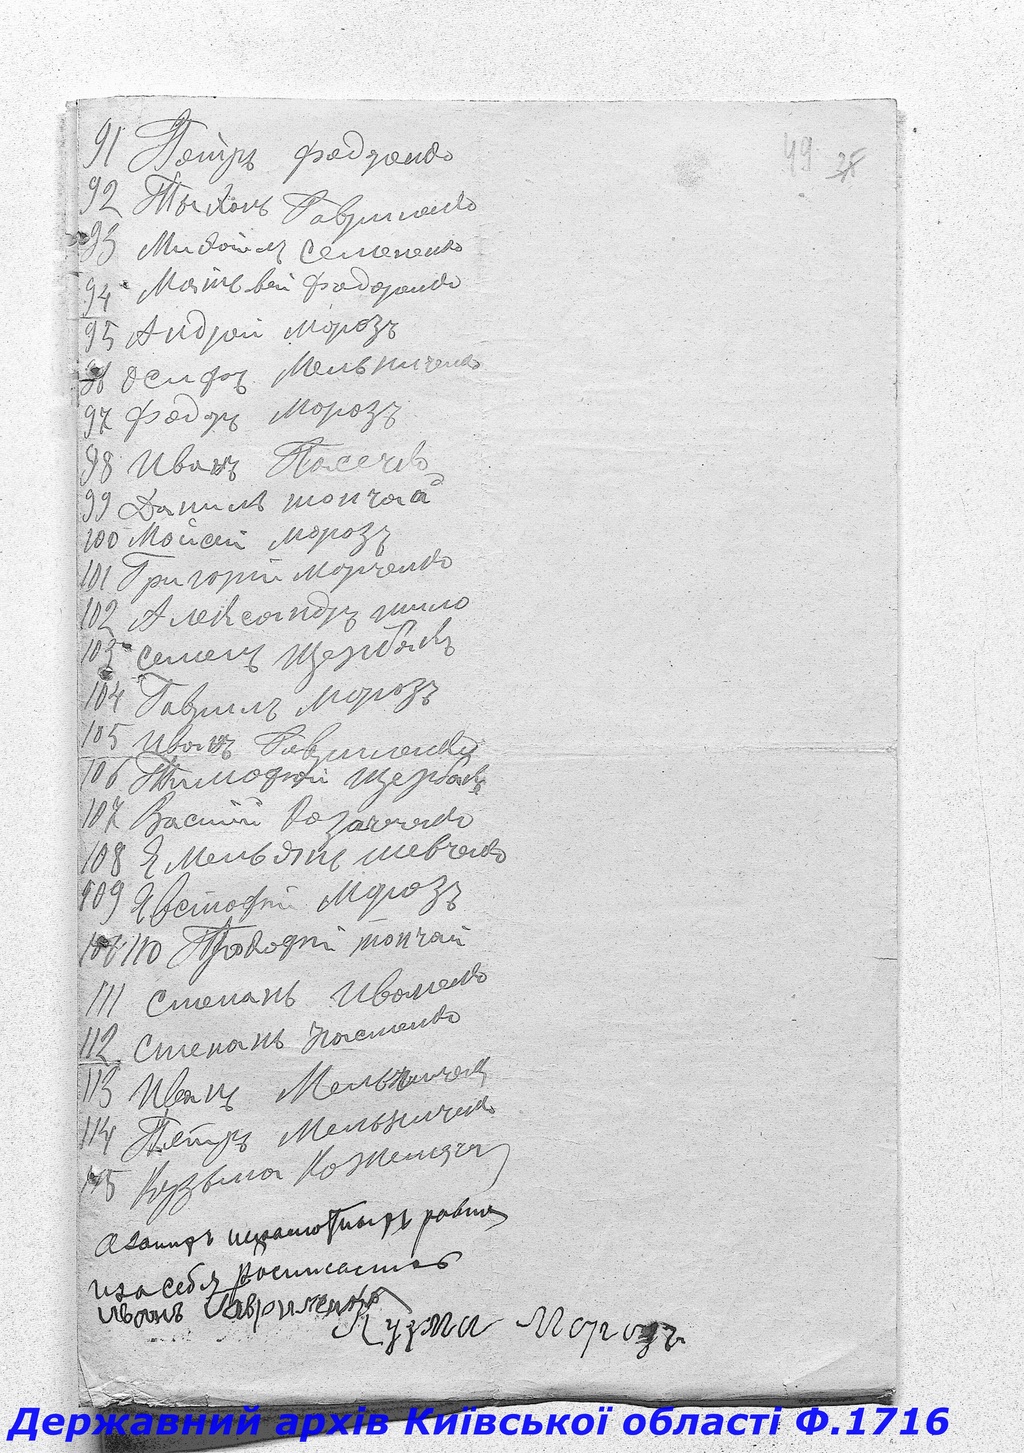 49
91 Петръ Федоренко
92 Тыхонъ Гавриленко
93 Михайлъ Семененко
94 Матьвей Федоренко
95 Андрей Морозъ
96 Осифъ Мельниченко
97 Федоръ Морозъ
98 Иванъ Пасечко
99 Данилъ топчай
100 Мойсей морозъ
101 Григорій Марченко
102 Александръ шило
103 Семенъ Щербакъ
104 Гаврилъ Морозъ
105 Иванъ Гавриленко
106 Тимофей Щербакъ
107 Василий Казаченко
108 Ямельянъ шевченко
109 Явстофей Морозъ
110 Прокофей топчай
111 Степанъ Иваненко
112 Степанъ Пасшенко
113 Иванъ Мельниченко
114 Петръ Мельниченко
115 Кузьма Кожемяка
а за нихъ неграмотныхъ равно
и за себя росписался
Иванъ Гавриленко
Кузма Морозъ
Державний архів Київської області Ф.1716